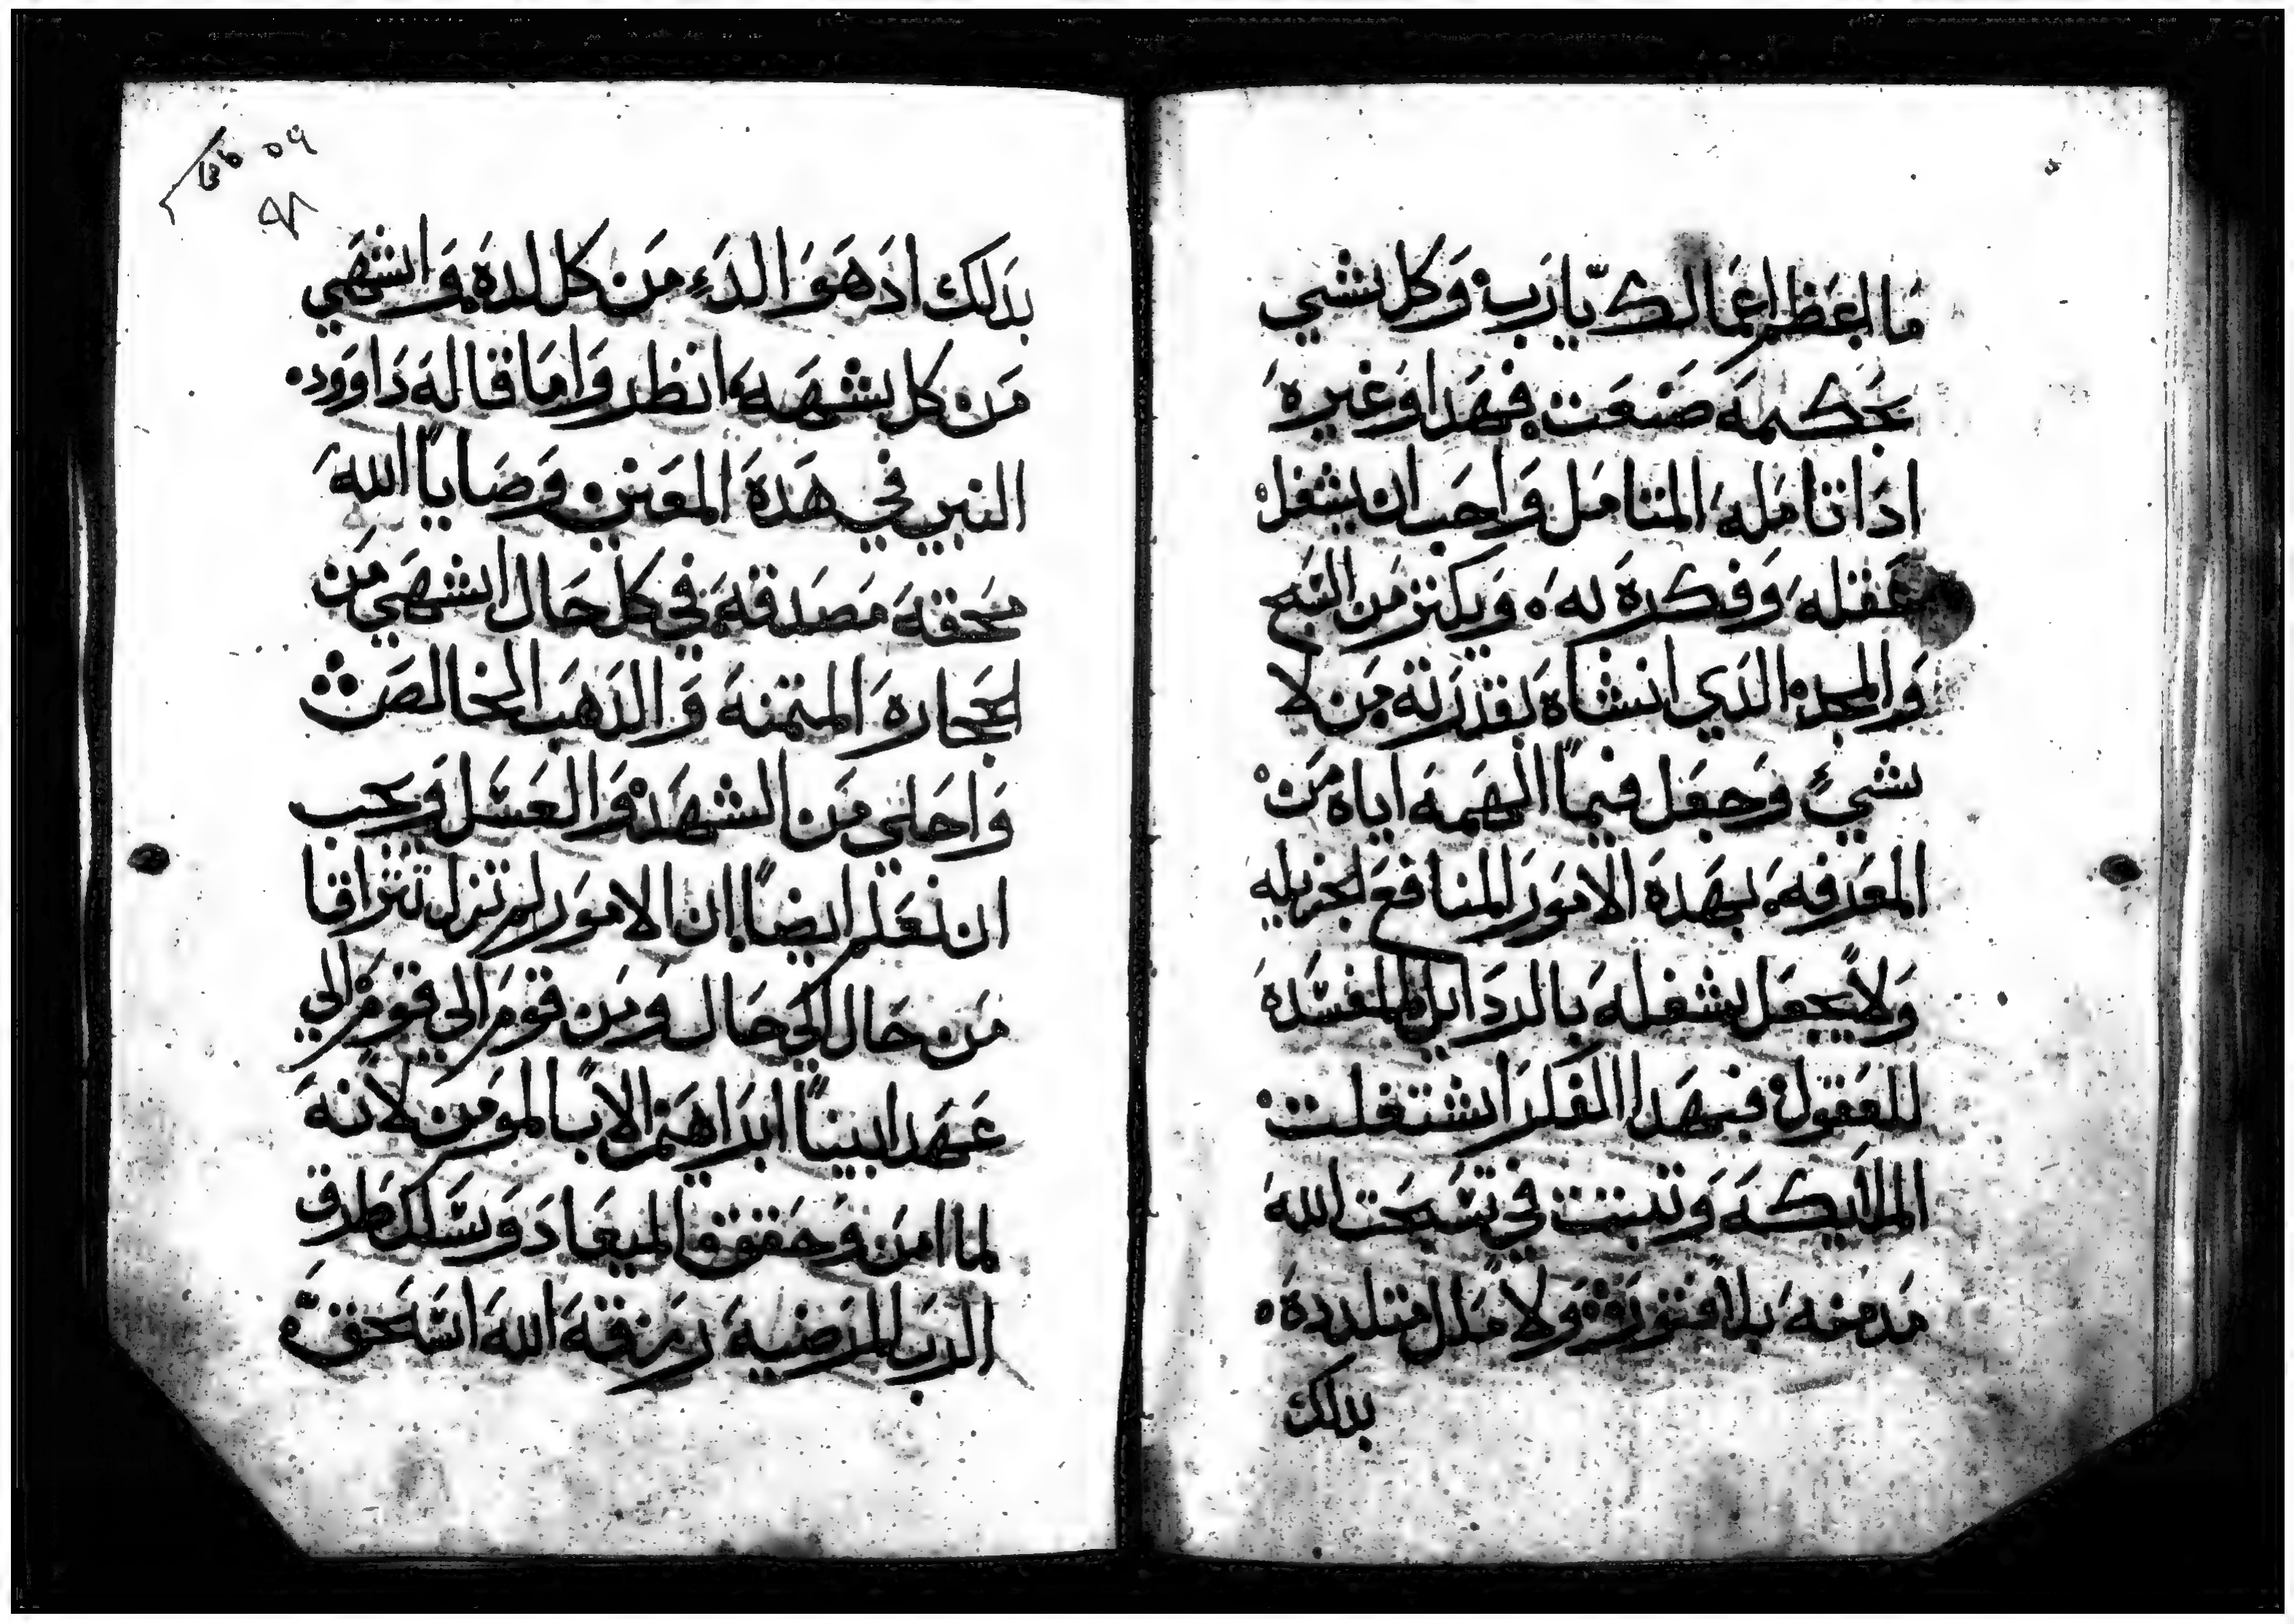 ما اعظم اعمالك يارب وكل شي
بحكمه صنعت فهدا وغيره
ادا تامله المتامل واجب ان يشغل
عقله وفكره به ويكتر من التسبيح
والمجد الدي انشاه بقدرته من لا
شي وجعل فيما الهمه اياه من
المعرفه بهده الامور المنافع الجزيله
ولا يجعل شغله بالردايل المفسده
للعقول فبهدا الفكر اشتغلت
الملايكه وتبتت في تسبحت الله
مدمنه بلا فتور ولا ملل متلدده
بدلك
بدلك اد هو الدء من كل لده واشهي
من كل شهيه انظروا ما قاله داوود
النبي في هده المعني وصايا الله
محققه مصدقه في كل حال اشهي من
الحجاره المتمنه والدهب الخالص
واحلي من الشهد والعسل ويجب
ان نعلم ايضا ان الامور لم تزل تتراقا
من حال الي حال ومن قوم الي قوم الي
عهد ابينا ابراهيم الاب المومن لانه
لما امن وحقق الميعاد وسلك طرق
الرب المرضيه رزقه الله اسحق